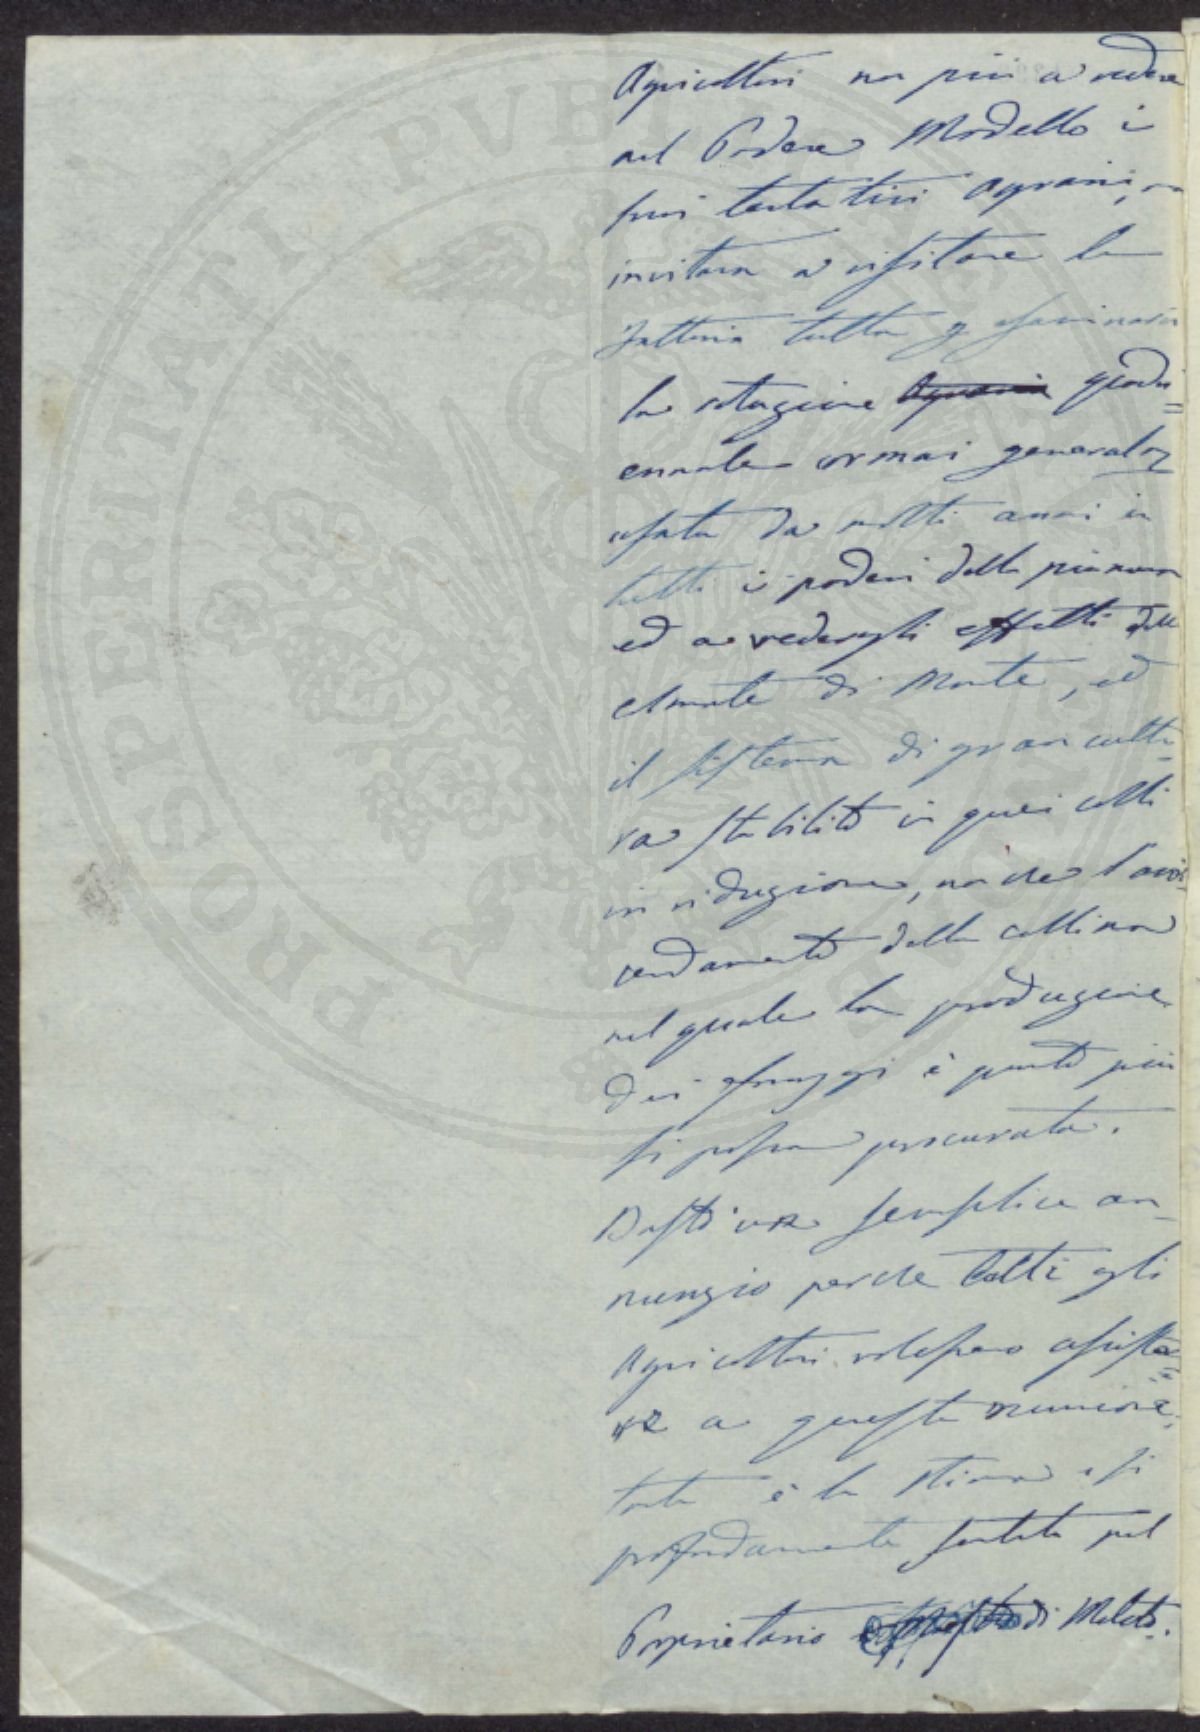 Agricoltori non più a vedere
nel Podere Modello i
suoi tentativi agrari, ma
invitava a visitare la
Fattoria tutta
la rotazione Agraria quadri=
ennale ormai general
usata da molti anni in
tutti i poderi della pianura
ed a vedere gli effetti delle
colmate di Monte, ed
il sistema di gran cultu
ra stabilito in quei colli
in riduzione, non che l'avvi=
cendamento della collina
nel quale la produzione
dei foraggi è quanto più
si possa procurata.
Bastò un semplice an
nunzio perche tutti gli
Agricoltori volessero assiste=
re a questa riunione,
tanta è la stima e sì
profondamente sentita pel
Proprietario di Meleto.
PROSPERITATI PUBLICAE